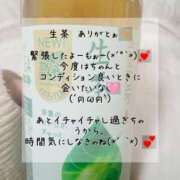 生茶 ありがとぉ
緊張したよーもぉー(๑′°︶°)💕
今度はちゃんと
コンディション良いときに
会いたいな💗
(´ฅωฅ`)
あとイチャイチャし過ぎちゃ
うから、
時間気にしなきゃね(๑′°︶°)💕
生